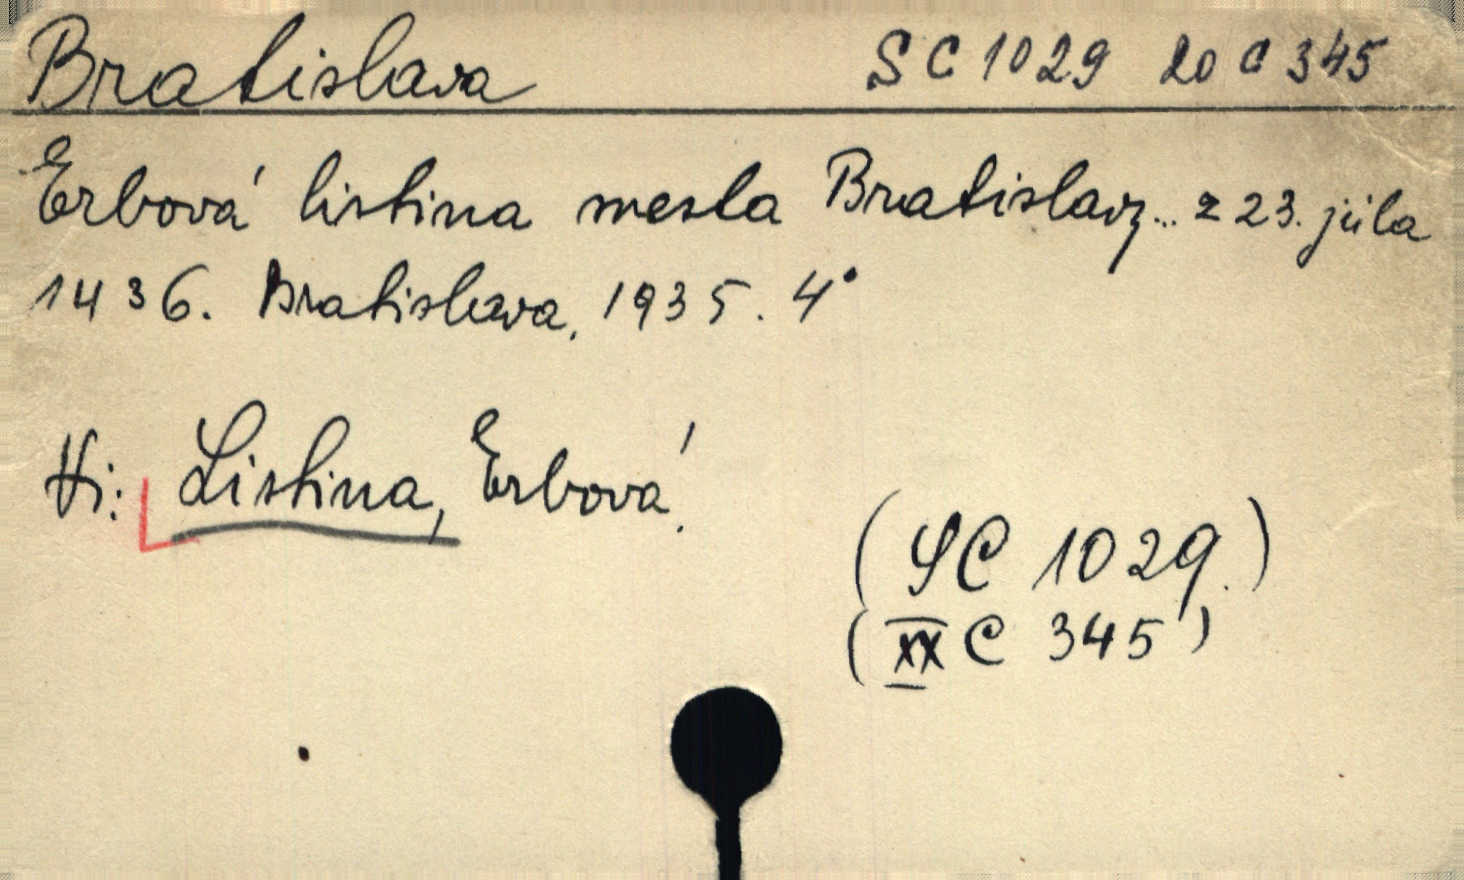 Bratislava SC 1029 20 C 345
Erbová listina mesta Bratislavy... z 23. júla
1436. Bratislava, 1935. 4°
Hi: Listina, Erbová.
(SC 1029.)
(XX C 345)